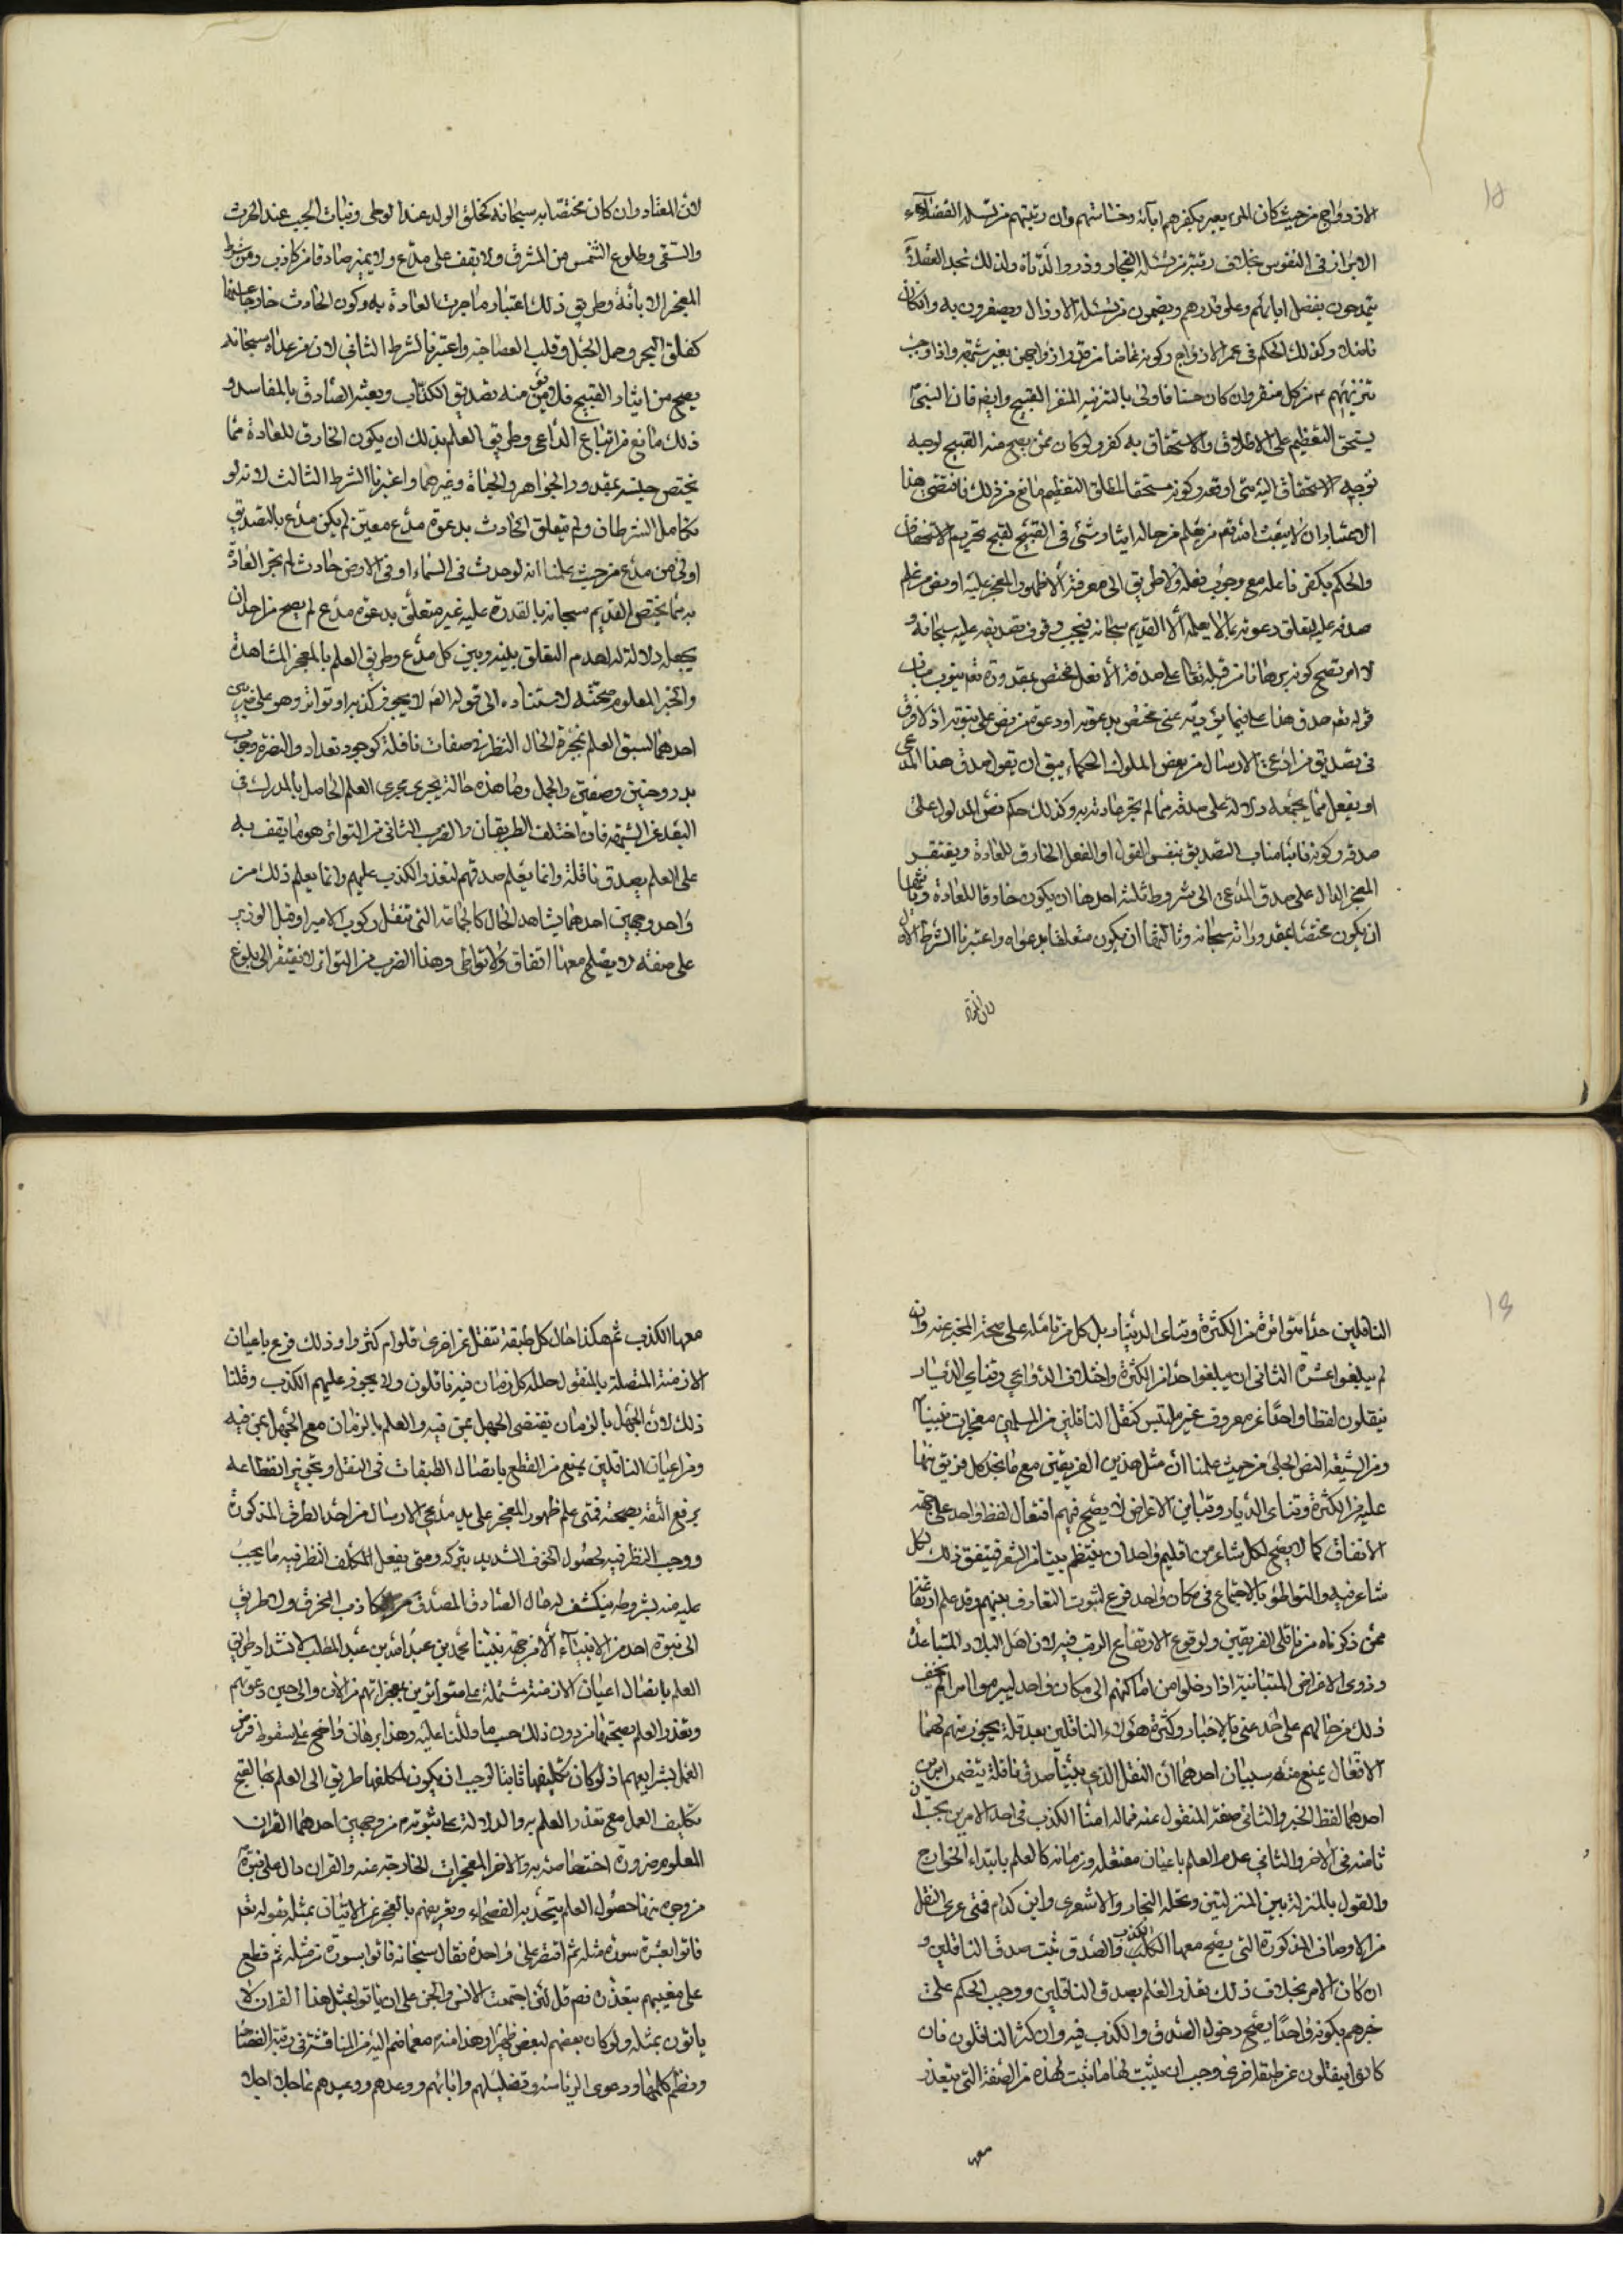 الازواج من حيث كان المرء يعير بكفرهم ابآئه وخساستهم وان رتبتهم من نسله الفضلاء
الابرار في النفوس بخلاف رتبته من نسله الفجار وذوو الدناة ولذلك نجد العقلآء
يتمدحون بفضل ابائهم وعلو قدرهم ويضعون من نسله الارذال ويصغرون به وان كان
فاضلا وكذلك الحكم في عهر الازواج وكونه غاضا من قدر ازواجهن بغير شبهة واذا وجب
تنزيههم ع من كل منفر وان كان حسنا فاولى بالتنزيه المنفر القبيح وايضا فان النبي
يستحق التعظيم على الاطلاق والاستخفاف به كفر ولو كان ممن يصح منه القبيح لوجب
توجيه الاستخفاف اليه متى اوقعه وكونه مستحقا لمطلق التعظيم مانع من ذلك فاقتضى هذا
الاعتبار ان لا يبعث الله تعم من يعلم من حاله ايثار شئ في القبيح لقبح تحريم الاستخفاف
والحكم بكفر فاعله مع وجوب فعله ولا طريق الى معرفته الا ظهور المعجز عليه او نص من علم
صدقه عليه لتعلق دعوته بما لا يعلمه الا القديم سبحانه فيجب وقوف تصديقه عليه سبحانه و
لا امر يصح كونه برهانا من قبله تعا على صدقه الا فعل يختص بمقدوره تعم ينوب مناب
قوله تعم صدق هذا علي فيما يؤديه عني مختص بدعوته او دعوة من نص على نبوته اذ لا فرق
في تصديق من ادعى الارسال من بعض الملوك الحكماء بين ان يقول صدق هذا المدعى
او يفعل ما يجعله دلالة على صدقه مما لم تجر عادته به وكذلك حكم فص المدلول على
صدقه وكونه نائبا مناب التصديق بنفس القول او الفعل الخارق للعادة ويفتقر
المعجز الدال على صدق المدعى الى شروط ثلثه احدها ان يكون خارقا للعادة وثانيها
ان يكون مختصا بمقدوراته سبحانه وثالثها ان يكون متعلقا بدعواه واعتبرنا الشرط الاول
لان المعتاد
لان المعتاد وان كان مختصا به سبحانه كخلق الولد عند الوطى ونبات الحب عند الحرث
والسقى وطلوع الشمس من المشرق ولا يقف على مدع ولا يميز صادقا من كاذب ومن شرط
المعجز الابانة وطريق ذلك اعتبار ما جرت العادة به وكون الحادث خارجا عنها
كفلق البحر وحمل الجبل وقلب العصا حية واعتبرنا الشرط الثاني لان من عداه سبحانه
يصح من ايثار القبيح فلا يؤمن منه تصديق الكذاب ويعتبر الصادق بالمفاسد و
ذلك مانع من اتباع الداعي وطريق العلم بذلك ان يكون الخارق للعادة مما
يختص جنسه بمقدوره الجواهر والحياة وغيرهما واعتبرنا الشرط الثالث لانه لو
تكامل الشرطان ولم يتعلق الحادث بدعوة مدع معين لم يكن مدع بالتصديق
اولى من مدع من حيث علمنا انه لو حدث في السماء او في الارض حادث لم تجر العادة
به مما يختص القديم سبحانه بالقدرة عليه غير متعلق بدعوة مدع لم يصح من احد ان
يجعله دلالة له لعدم التعلق بينه وبين كل مدع وطريق العلم بالمعجز المشاهدة
والخبر المعلوم صحته لاستناده الى قوله من لا يجوز كذبه او تواتر وهو على ضربين
احدهما لسبق العلم بمخبره الحال النظر في صفات ناقلة كوجود بغداد والبصرة وحروب
بدر وحنين وصفين والجمل وما هذه حاله يجرى مجرى العلم الحاصل بالمدرك في
البعد عن الشبهة فان اختلف الطريقان والضرب الثاني من التواتر هو ما يقف به
على العلم بصدق ناقلة وانما يعلم صدقهم لتعذر الكذب عليهم وانما يعلم ذلك من
واحد وجهين احدهما يشاهد الحال كالجماعة التي تنقل ركوب الامير او قتل الوزير
على صفة لا يصلح معها اتفاق ولا تواطى وهذا الضرب من التواتر لا يفتقر الى بلوغ
الناقلين حدا متواترة من الكثرة وتنائى الديار بل كل من تامله على صحة المخبر عنه وان
لم يبلغوا عشرة الثاني ان يبلغوا حدا من الكثرة واختلاف الدواعي وتنائي الديار
ينقلون لفظا واحدا غير معروف غير ملتبس كنقل الناقلين من المسلمين معجزات نبينا
ومن الشيعة النص الجلى من حيث علمنا ان مثل هذين الفريقين مع ما نجد كل فريق منهما
عليه من الكثرة وتنائ الديار وتباين الاغراض لا يصح فيهم افتعال لفظ واحد على جهة
الاتفاق كما لا يصح لكل شاعر من اقليم واحد ان ينتظم بيتا من الشعر فيتفق ذلك لكل
شاعر فيه والتواطؤ بالاجتماع في مكان واحد فرع لثبوت التعارف بينهم وقد علم ارتفاعه
ممن ذكرناه من ناقلي الفريقين ولوقوع الارتفاع الريب فيه لان اهل البلاد المتباعدة
وذوى الاغراض المتباينة اذا دخلوا من اماكنهم الى مكان واحد ليبرموا امرا لم يخف
ذلك من حالهم على احد عنى بالاخبار وكثرة هؤلاء الناقلين بعد قلة يجوز منهم لهما
الافتعال يمنع منه سببان احدهما ان النقل الذي بينا صدق ناقلة يتضمن امرين
احدهما لفظ الخبر والثاني صفة المنقول عنه فماله امنا الكذب في احد الامرين يجب ان
نامنه في الاخر والثاني عدم العلم باعيان مفتعلة وزمانه كالعلم بابتداء الخوارج
والقول بالمنزلة بين المنزلتين ونحلة النجار والاشعرى وابن كدام فمتى عرى النقل
من الاوصاف المذكورة التي يصح معها الكذب والصدق ثبت صدق الناقلين و
ان كان الامر بخلاف ذلك تعذر العلم بصدق الناقلين ووجب الحكم على
خبرهم بكونه واحدا يصح دخول الصدق والكذب فيه وان كثر الناقلون فان
كانوا ينقلون عن طبقة اخرى وجب ان يثبت لها ما ثبت لهذه من الصفة التي يتعذر
معها
معها الكذب ثم هكذا حال كل طبقة تنقل عن اخرى قلوا ام كثروا وذلك فرع باعيان
الازمنة المتصلة بالمنقول حلله كل زمان فيه ناقلون ولا يجوز عليهم الكذب وقلنا
ذلك لان الجهل بالزمان يقتضى الجهل بمن فيه والعلم بالزمان مع الجهل بمن فيه
ومن اعيان الناقلين يمنع من القطع باتصال الطبقات في النقل وتجويز انقطاعه
يرفع الثقة بصحته فمتى علم ظهور المعجز على يد مدعي الارسال من احد الطرق المذكورة
ووجب النظر فيه لحصول الخوف الشديد بتركه ومتى يفعل المكلف النظر فيه ما يجب
عليه منه بشروطه ينكشف له حال الصادق المصدق من كاذب المخرق ولا طريق
الى نبوة احد من الانبيآء الا من جهة نبينا محمد بن عبد الله بن عبد المطلب لانسداد طريق
العلم باتصال اعيان الازمنة مشتملة على متواترين بمعجزاتهم من الان والى حين دعوتهم
وتعذر العلم بصحتها من دون ذلك حسب ما دللنا عليه وهذا برهان واضح على سقوط فرض
العمل بشرايعهم اذ لو كان تكليفها ثابتا لوجب ان يكون لمكلفها طريق الى العلم بها لقبح
تكليف العمل مع تعذر العلم به والدلالة على ثبوته من وجهين احدهما القران
المعلوم ضرورة اختصاصه به والاخر المعجزات الخارجة عنه والقران دال على نبوته
من وجوه منها حصول العلم بتحديه الفصحاء وتقريعهم بالعجز عن الاتيان بمثله بقوله تعم
فاتوا بعشر سور مثله ثم اقتصر على واحدة فقال سبحانه فاتوا بسورة من مثله ثم قطع
على مغيبهم بتعذره فقم قل لئن اجتمعت الانس والجن على ان ياتوا بمثل هذا القران لا
ياتون بمثله ولو كان بعضهم لبعض ظهيرا وهذا منه مع ما ضم اليه من المناقشة في رتبة الفصاحة
ونظم كلمها ودعوى الرياسة وتضليلهم وابائهم ووعدهم ووعيدهم عاجلا اجلا